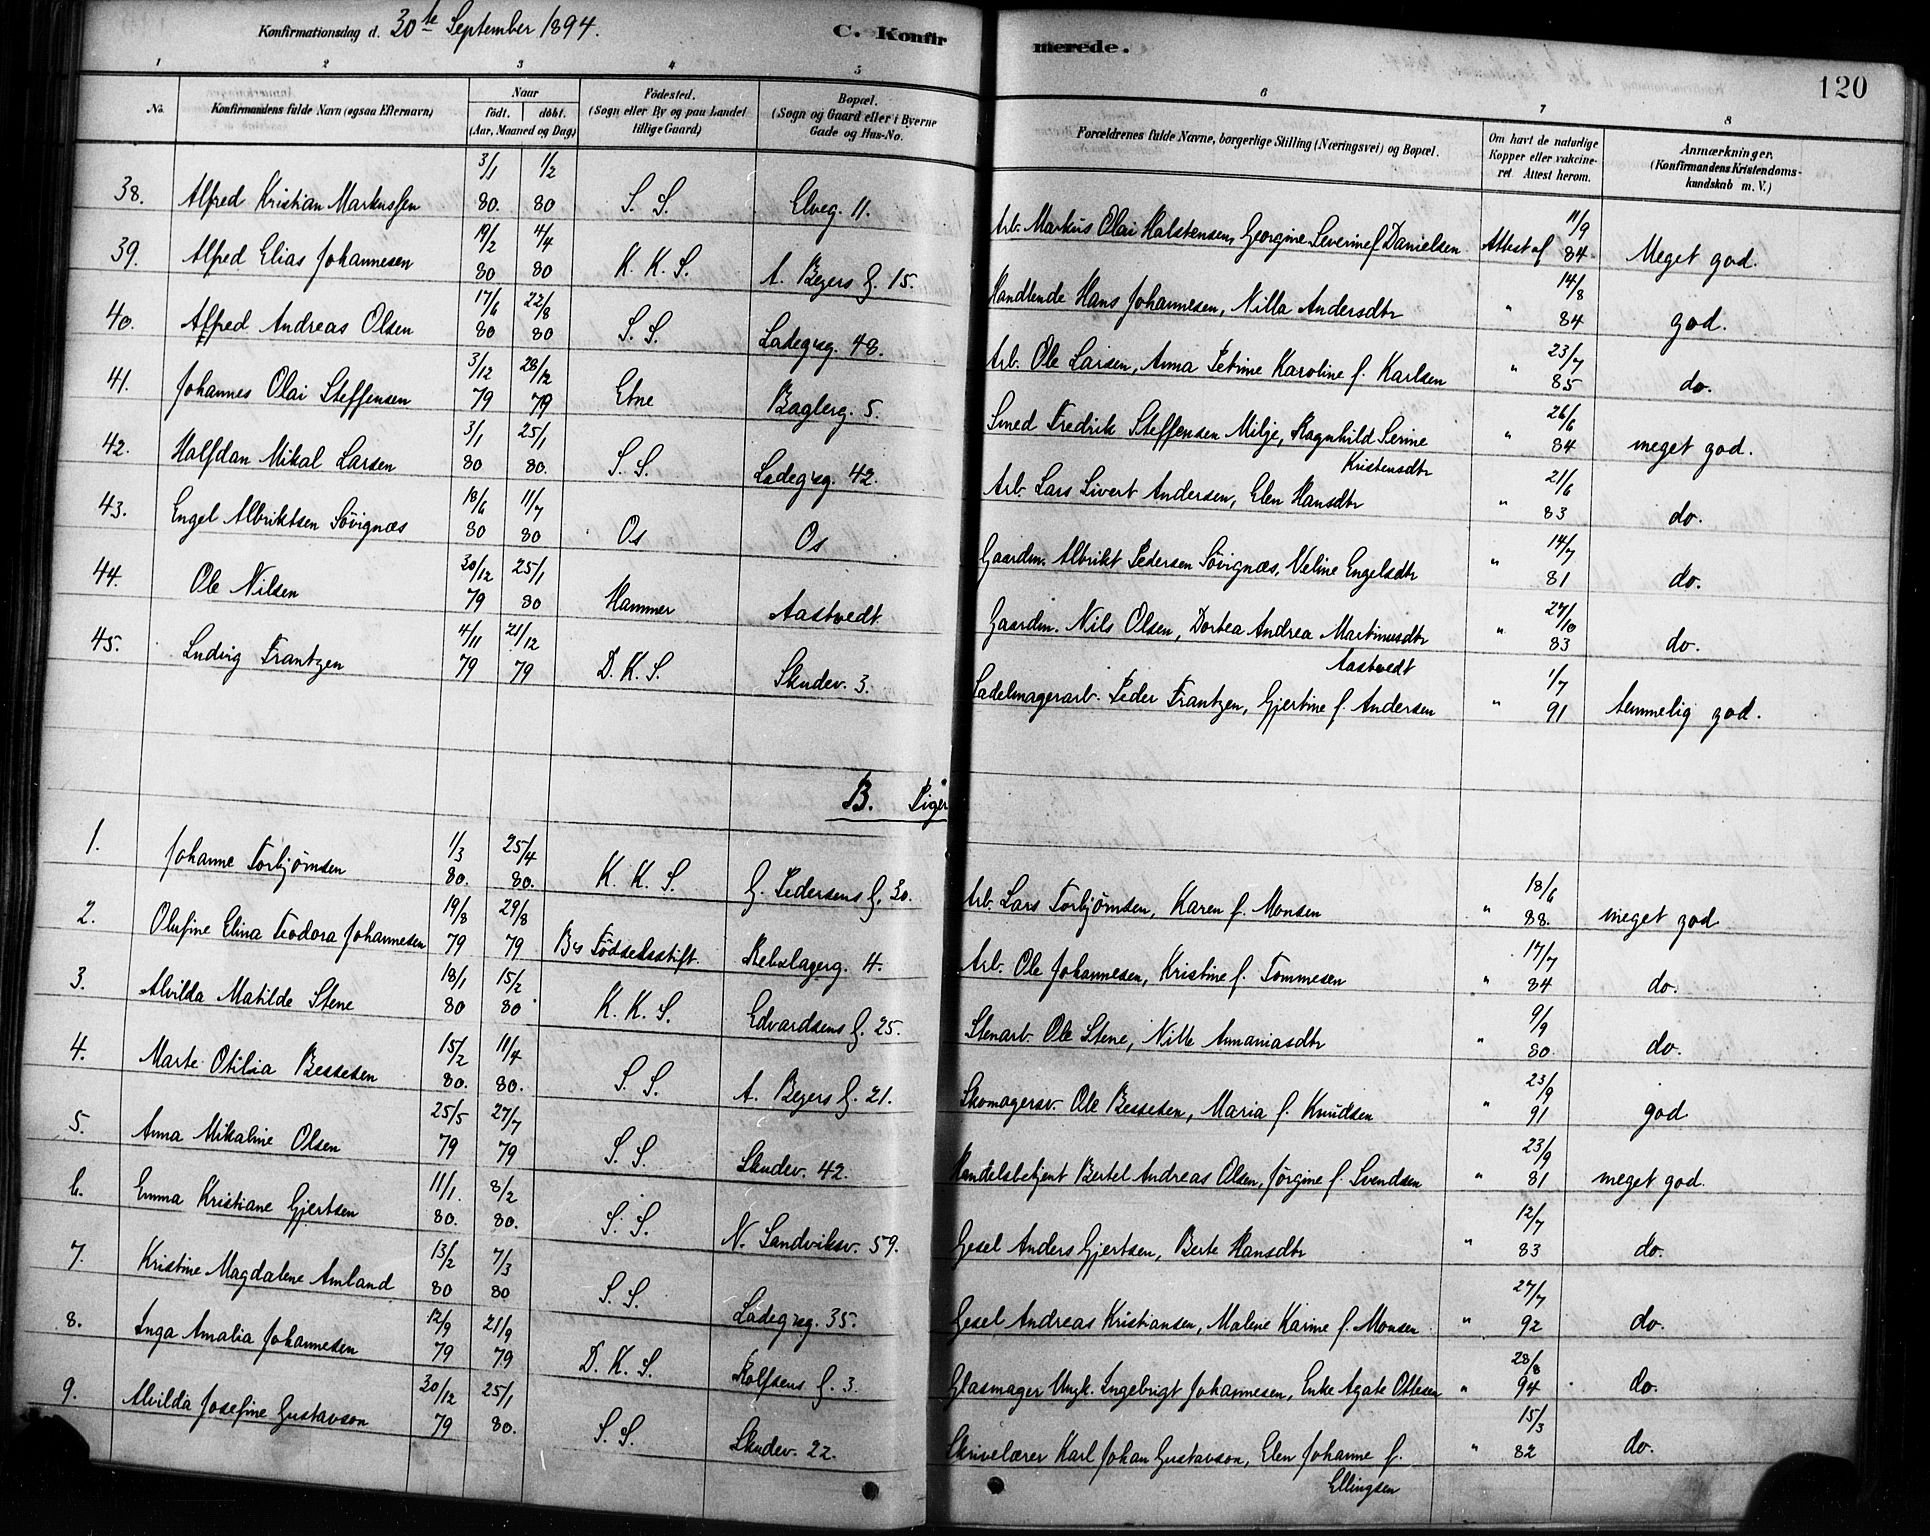 Konfirmationsdag d. 30te September 1894. C. Konfirmerede. 120
1 2 3 4 5 6 7 8
No. Konfirmandens fulde Navn (ogsaa Efternavn) Naar født. døbt. (Aar, Maaned og Dag) Fødested. (Sogn eller By og paa Landet tillige Gaard) Bopæl. (Sogn og Gaard eller i Byerne Gade og Hus-No. Forældrenes fulde Navne, borgerlige Stilling (Næringsvei) og Bopæl. Om havt de naturlige Kopper eller vakcineret. Attest herom. Anmærkninger. (Konfirmandens Kristendomskundskab m. V.)
38. Alfred Kristian Markussen 3/1 80. 1/2 80 S. S. Elveg. 11. Arb. Markus Olai Halstensen, Georgine Severine f. Danielsen Attest af 11/9 84 Meget god.
39. Alfred Elias Johannesen 19/2 80 4/4 80 K. K. S. A. Beyers G. 15. Handlende Hans Johannesen, Nilla Andersdtr " 14/8 84 god.
40. Alfred Andreas Olsen 17/6 80 22/8 80 S. S. Ladegrsg. 48. Arb. Ole Larsen, Anna Petrine Karoline f. Karlsen " 23/7 85 do.
41. Johannes Olai Steffensen 3/12 79 28/12 79 Etne Baglerg. 5. Smed Fredrik Steffensen Milje, Ragnhild Serine Kristensdtr " 26/6 84 meget god.
42. Halfdan Mikal Larsen 3/1 80 25/1 80. S. S. Ladegrsg. 42. Arb. Lars Sivert Andersen, Elen Hansdtr " 21/6 83 do.
43. Engel Albriktsen Søvignæs 18/6 80 11/7 80 Os Os Gaardm. Albrikt Pedersen Søvignæs, Veline Engelsdtr " 14/7 81 do.
44. Ole Nilsen 30/12 79 25/1 80 Hammer Aastvedt Gaardm. Nils Olsen, Dortea Andrea Martinusdtr Aastvedt " 27/10 83 do.
45. Ludvig Frantzen 4/11 79 21/12 79 D. K. S. Skudev. 3. Sadelmagerarb. Peder Frantzen, Gjertine f. Andersen " 1/7 91 temmelig god.
B. Piger
1. Johanne Torbjørnsen 1/3 80. 25/4 80. K. K. S. G. Pedersens G. 30. Arb. Lars Torbjørnsen, Karen f. Monsen " 18/6 88. meget god
2. Olufine Elina Teodora Johannesen 19/8 79 29/8 79 Bs Fødselsstift. Rebslagerg. 4. Arb. Ole Johannesen, Kristine f. Tommesen " 17/7 84 do.
3. Alvilda Matilde Stene 18/1 80 15/2 80 K. K. S. Edvardsens G. 25. Stenarb. Ole Stene, Nille Annaniasdtr " 9/9 80. do.
4. Marte Otilia Bessesen 15/2 80. 11/4 80. S. S. A. Beyers G. 21. Skomagersv. Ole Bessesen, Maria f. Knudsen " 23/9 91 god
5. Anna Mikaline Olsen 25/5 79 27/7 79 S. S. Skudev. 42. Handelsbetjent Bertel Andreas Olsen, Jørgine f. Svendsen " 23/9 81 meget god.
6. Emma Kristiane Gjertsen 11/1. 80. 8/2 80. S. S. N. Sandviksv. 59. Gesel Anders Gjertsen, Berte Hansdtr " 12/7 83 do.
7. Kristine Magdalene Amland 13/2 80 7/3 80 S. S. Ladegrsg. 35. Gesel Andreas Kristiansen, Malene Karine f. Monsen " 27/7 92 do.
8. Inga Amalia Johannesen 12/9 79 21/9 79 D. K. S. Rolfsens G. 3. Glasmager Ungk. Ingebrigt Johannesen, Enke Agate Ottesen " 28/8 94 do.
9. Alvilda Josefine Gustavson 30/12 79 25/1 80. S. S. Skudev. 22. Skrivelærer Karl Johan Gustavson, Elen Johanne f. Ellingsen " 15/3 82 do.